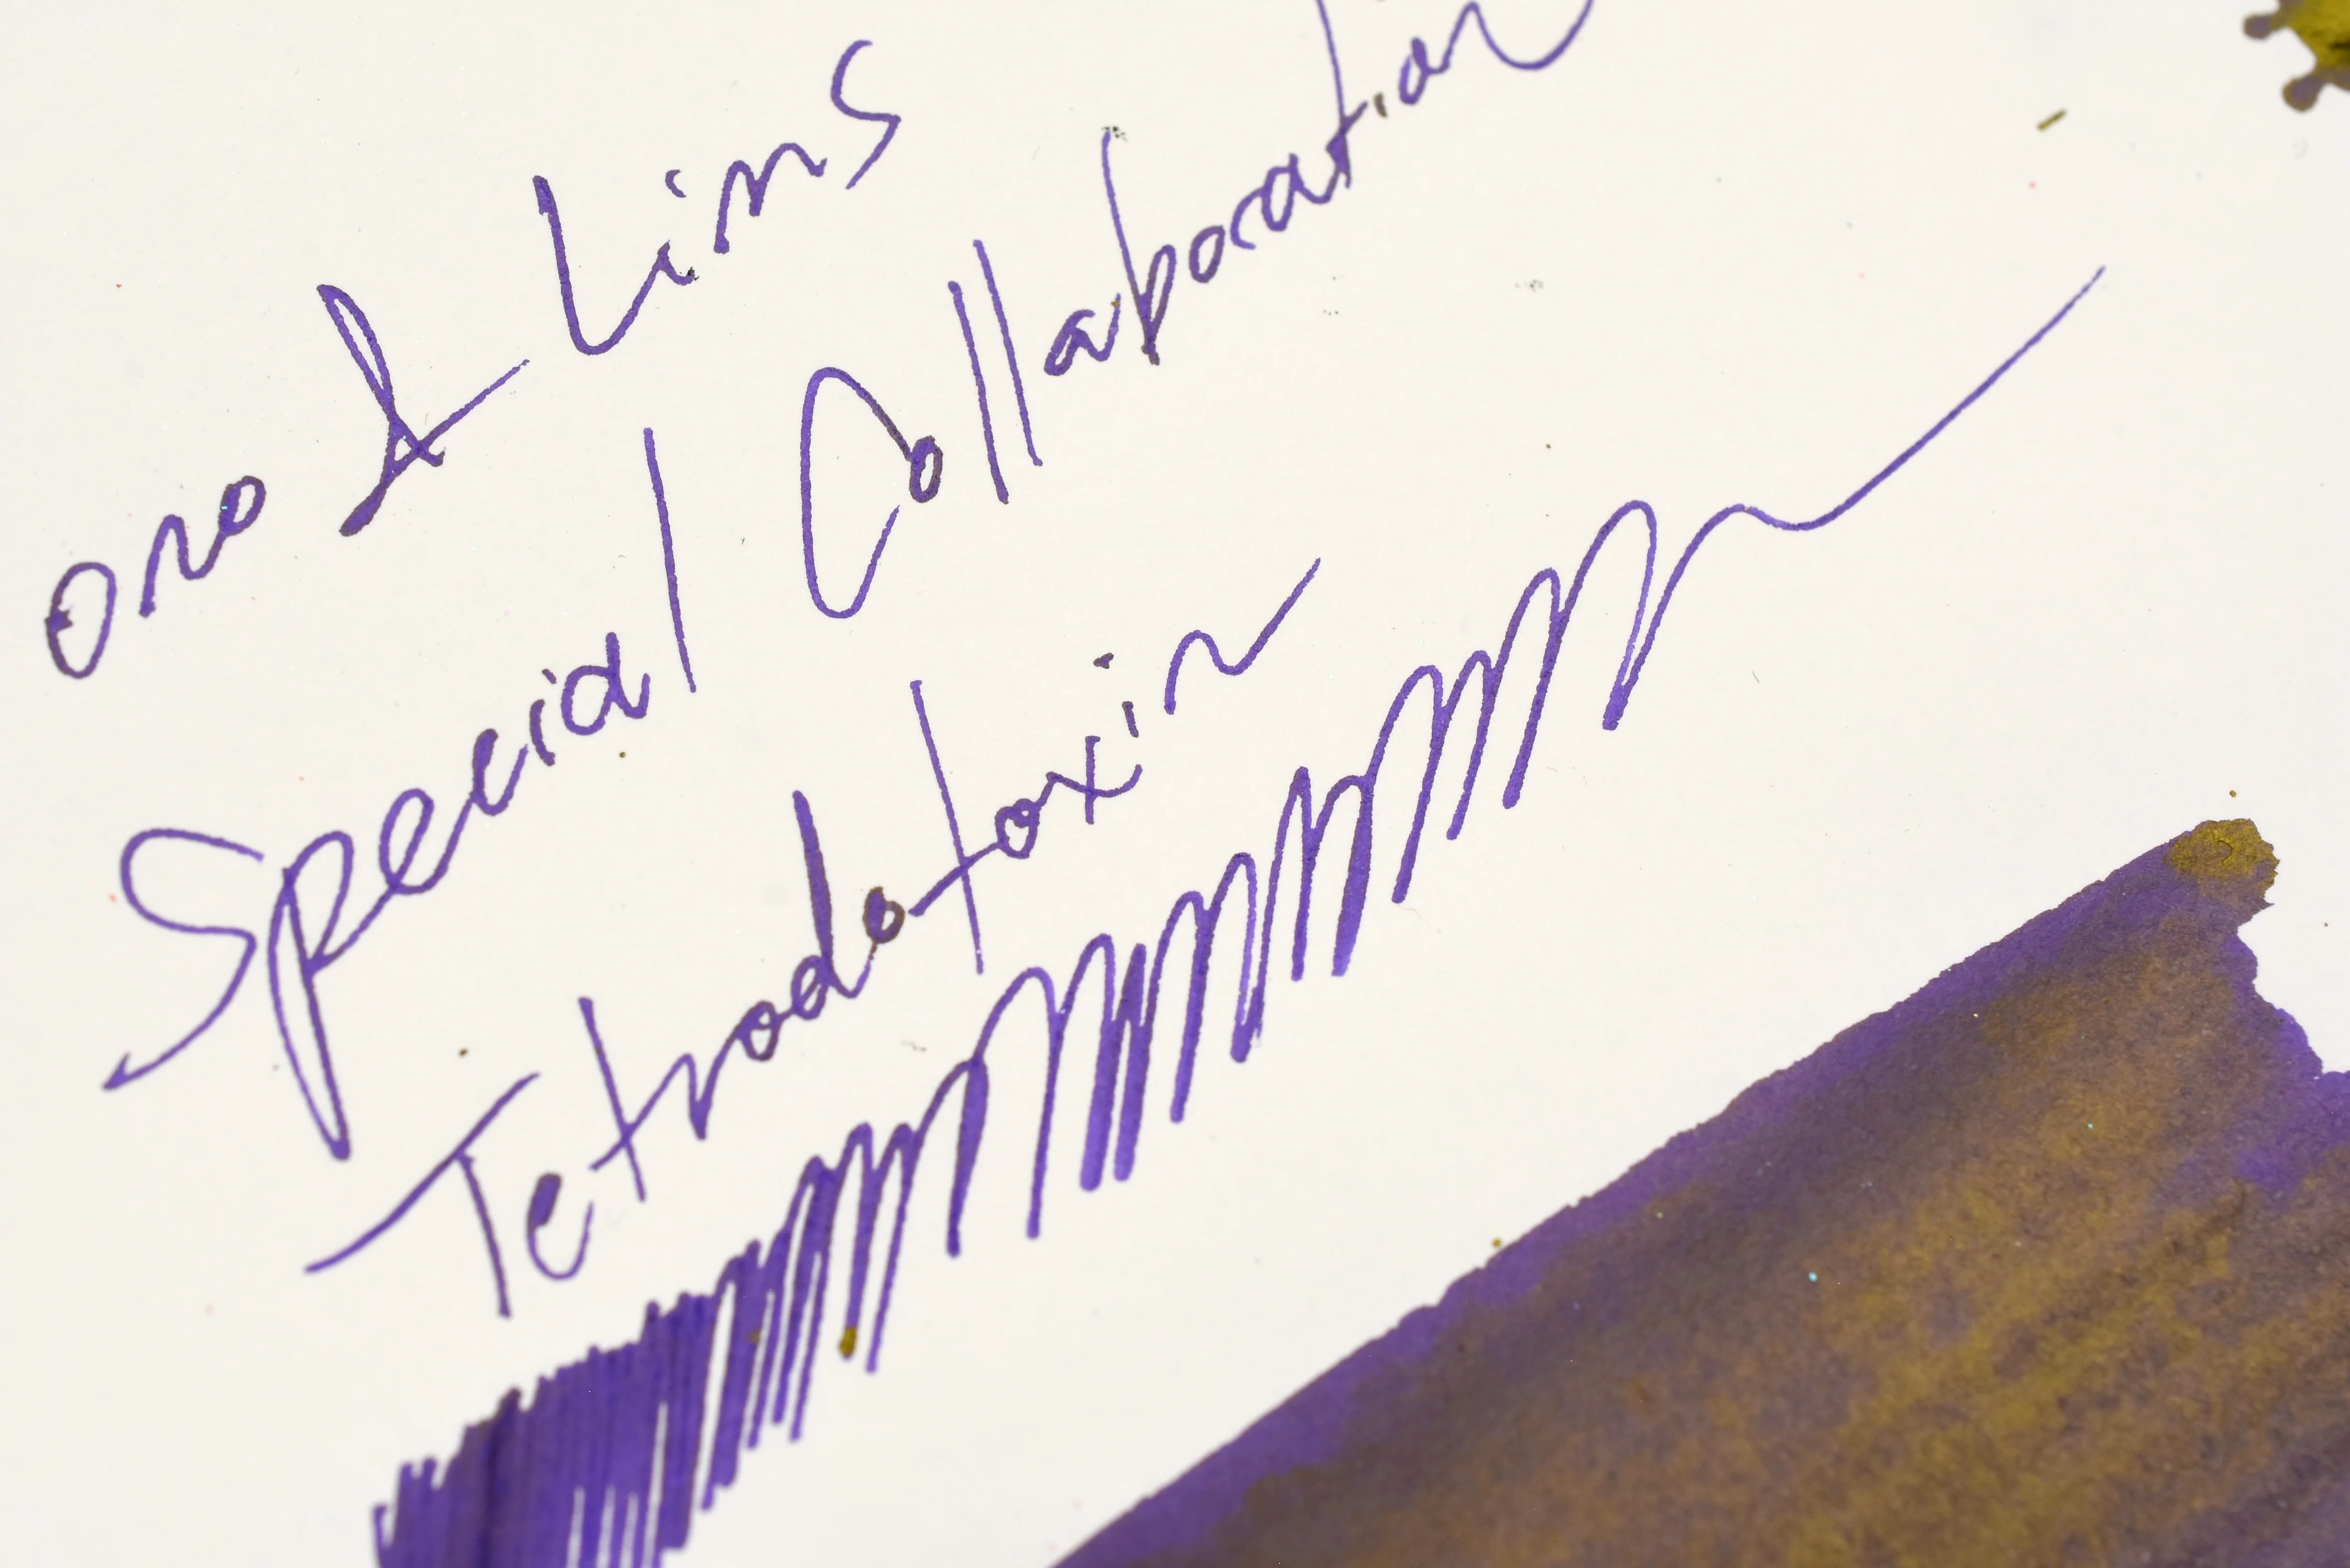 oro & Lims
Special Collaboration
Tetrodotoxin